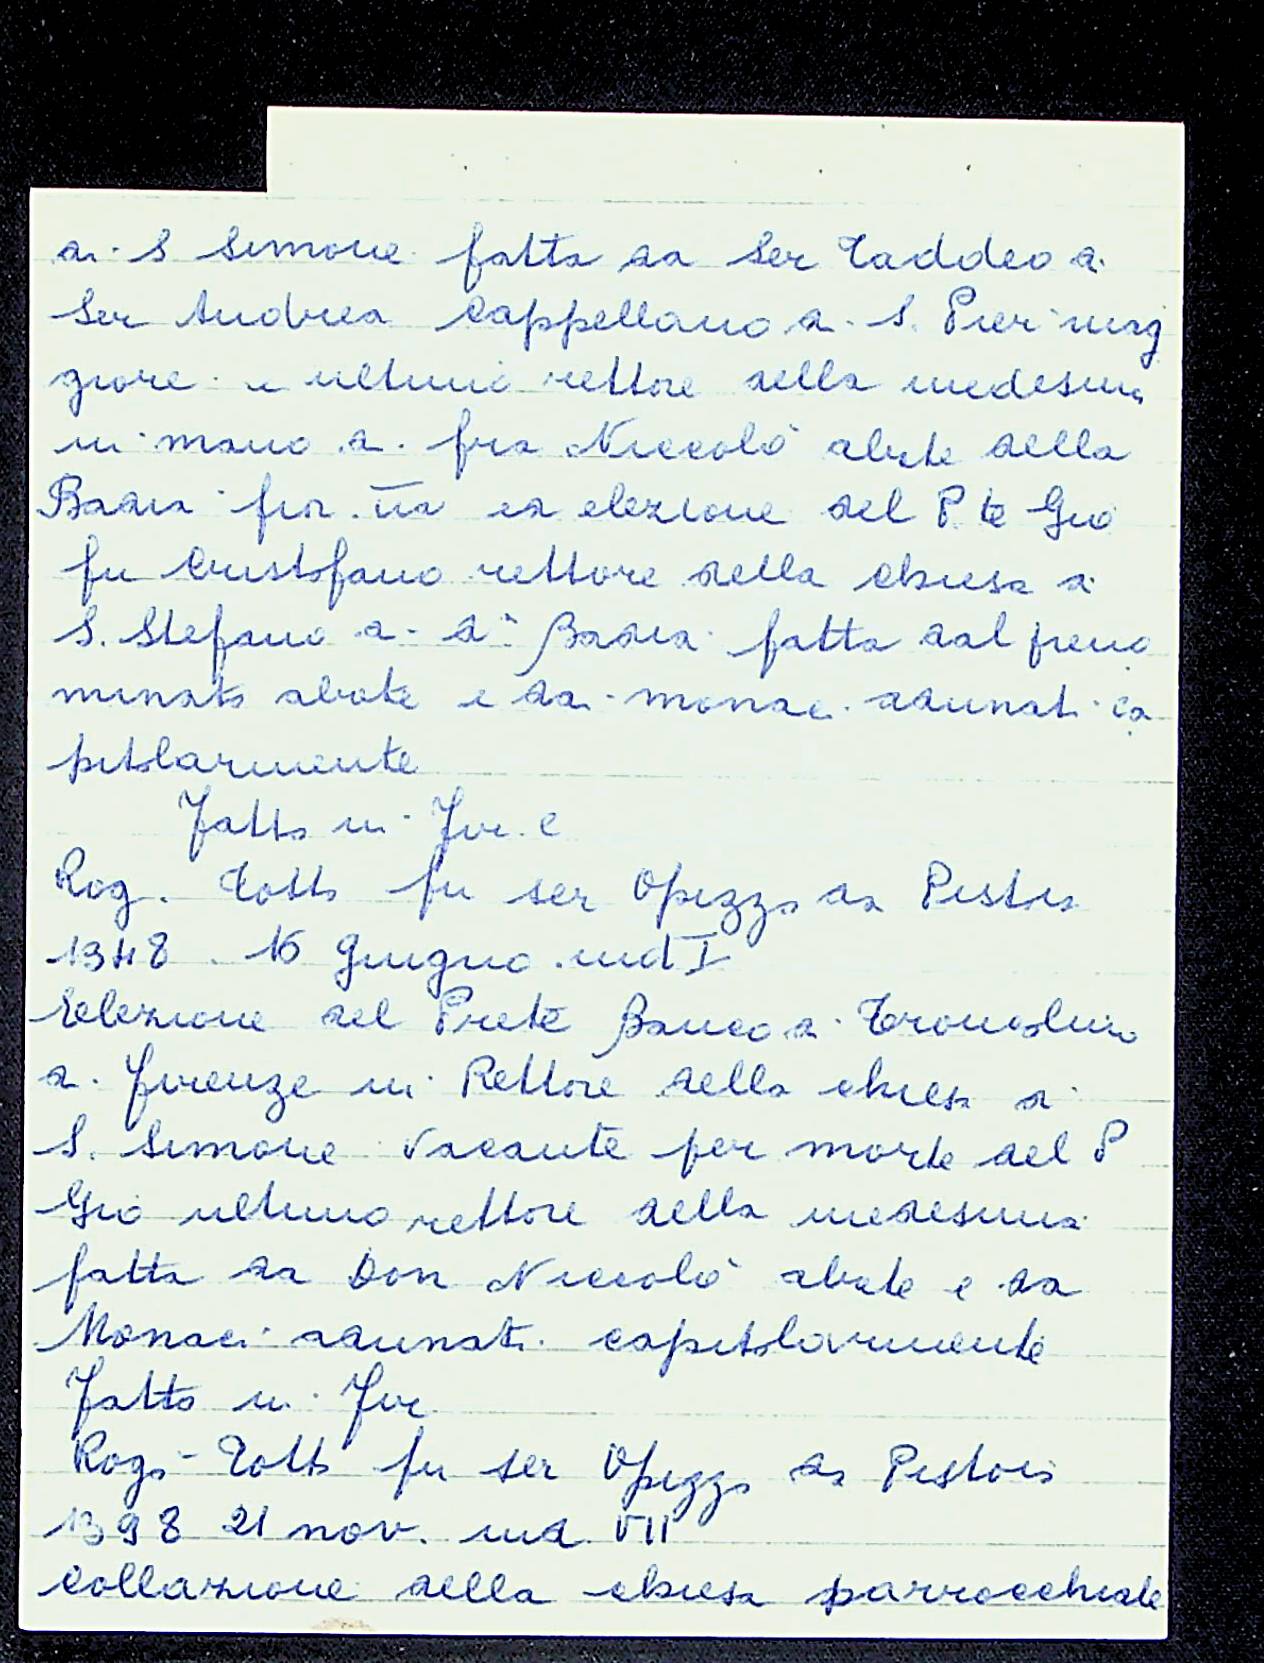 di S Simone fatta da Ser Taddeo di
Ser Andrea Cappellano di S. Pier mag
giore e ultimo rettore della medesima
in mano di fra Niccolò abate della
Badia fior.na ed elezione del P.te Gio
fu Cristofano rettore della chiesa di
S. Stefano di da Badia fatta dal preno
minato abate e dai monaci adunati ca
pitolarmente
Fatto in Fir.e
Rog. Totto fu ser Opizzo da Pistoia
1348 . 16 Giugno . ind I
Elezione del Prete Banco di
di Firenze in Rettore della chiesa di
S. Simone vacante per morte del P
Gio ultimo rettore della medesima
fatta da Don Niccolò abate e da
Monaci adunati capitolarmente
Fatto in Fir
Rogo - Totto fu ser Opizzo da Pistoia
1398 21 nov. ind. VII
Collazione della chiesa parrocchiale